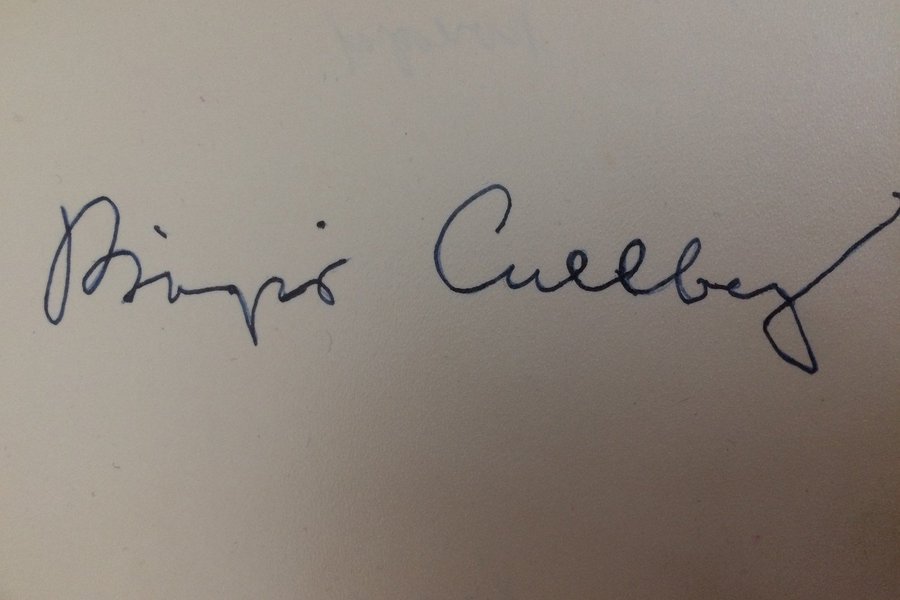 Birgit Cullberg